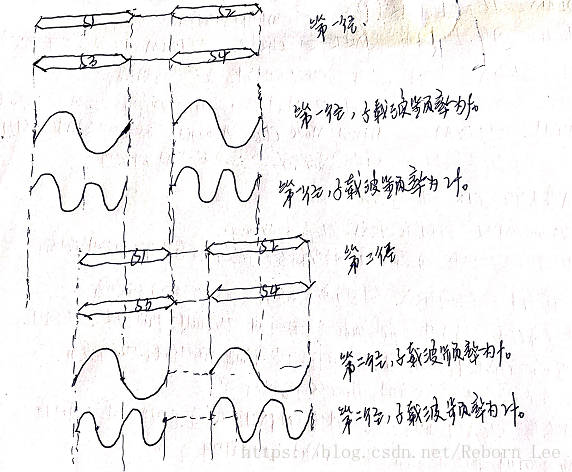 S1 S2 第一径.
S3 S4
第一径,子载波频率为f₀
第一径,子载波频率为2f₀
S1 S2 第二径
S3 S4
第二径,子载波频率为f₀
第二径,子载波频率为2f₀
https://blog.csdn.net/Reborn_Lee